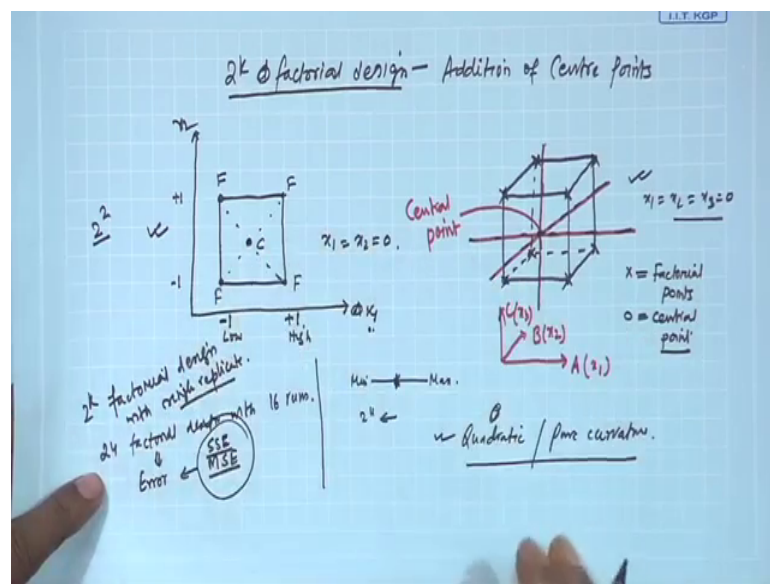 I.I.T. KGP
2^k factorial design - Addition of Centre Points
x2
F F
+1
2^2
C
x1 = x2 = 0.
-1
F F
-1 +1 x1
Low High
Central
point
x1 = x2 = x3 = 0
x = Factorial
points
o = central
point
C(x3)
B(x2)
A(x1)
2^k factorial design
with single replicate.
24 factorial design with 16 runs.
Error
SSE
MSE
Min Max.
2^4
Quadratic / Pure curvature.